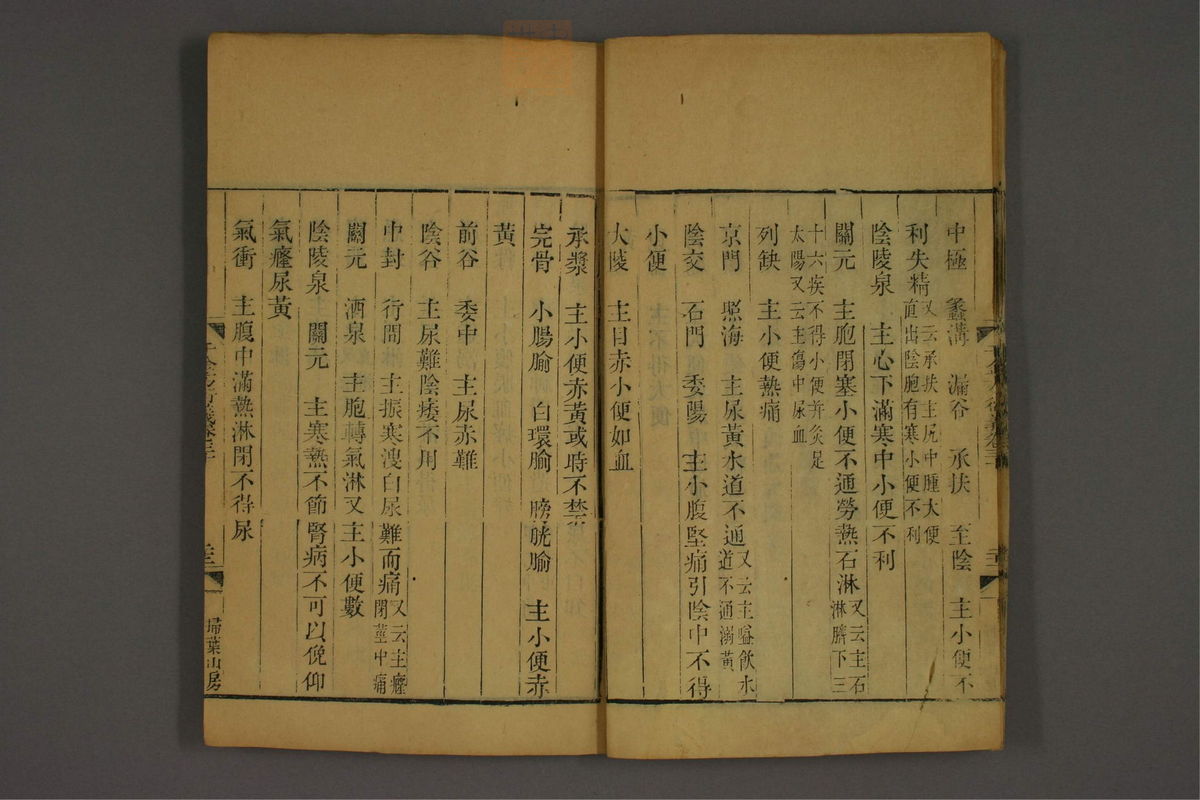 中極　蠡溝　漏谷　承扶　至陰　主小便不
利失精又云承扶主尻中腫大便
直出陰胞有寒小便不利
陰陵泉　主心下滿寒中小便不利
關元　主胞閉塞小便不通勞熱石淋又云主石
淋臍下三
十六疾不得小便并灸足
太陽又云主傷中尿血
列缺　主小便熱痛
京門　照海　主尿黃水道不通又云主嗌飲水
道不通溺黃
陰交　石門　委陽　主小腹堅痛引陰中不得
小便
大陵　主目赤小便如血
承漿　主小便赤黃或時不禁
完骨　小腸腧　白環腧　膀胱腧　主小便赤
黃
前谷　委中　主尿赤難
陰谷　主尿難陰痿不用
中封　行間　主振寒溲白尿難而痛又云主癃
閉莖中痛
關元　涌泉　主胞轉氣淋又主小便數
陰陵泉　關元　主寒熱不節腎病不可以俛仰
氣癃尿黃
氣衝　主腹中滿熱淋閉不得尿
掃葉山房